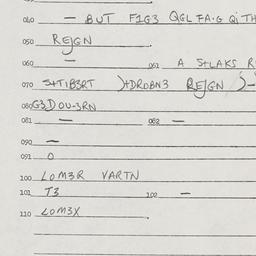 040 — BUT F1G3 QGL FA.G QiTH
050 REJGN
060 — 061 A S+LAKS R
070 S+TIB3RT )+DROBN3 REJGN )-
080 G3DOU-3RN
081 — 082 —
090 —
091 O
100 LOM3R VARTN
101 T3 102 —
110 LOM3X